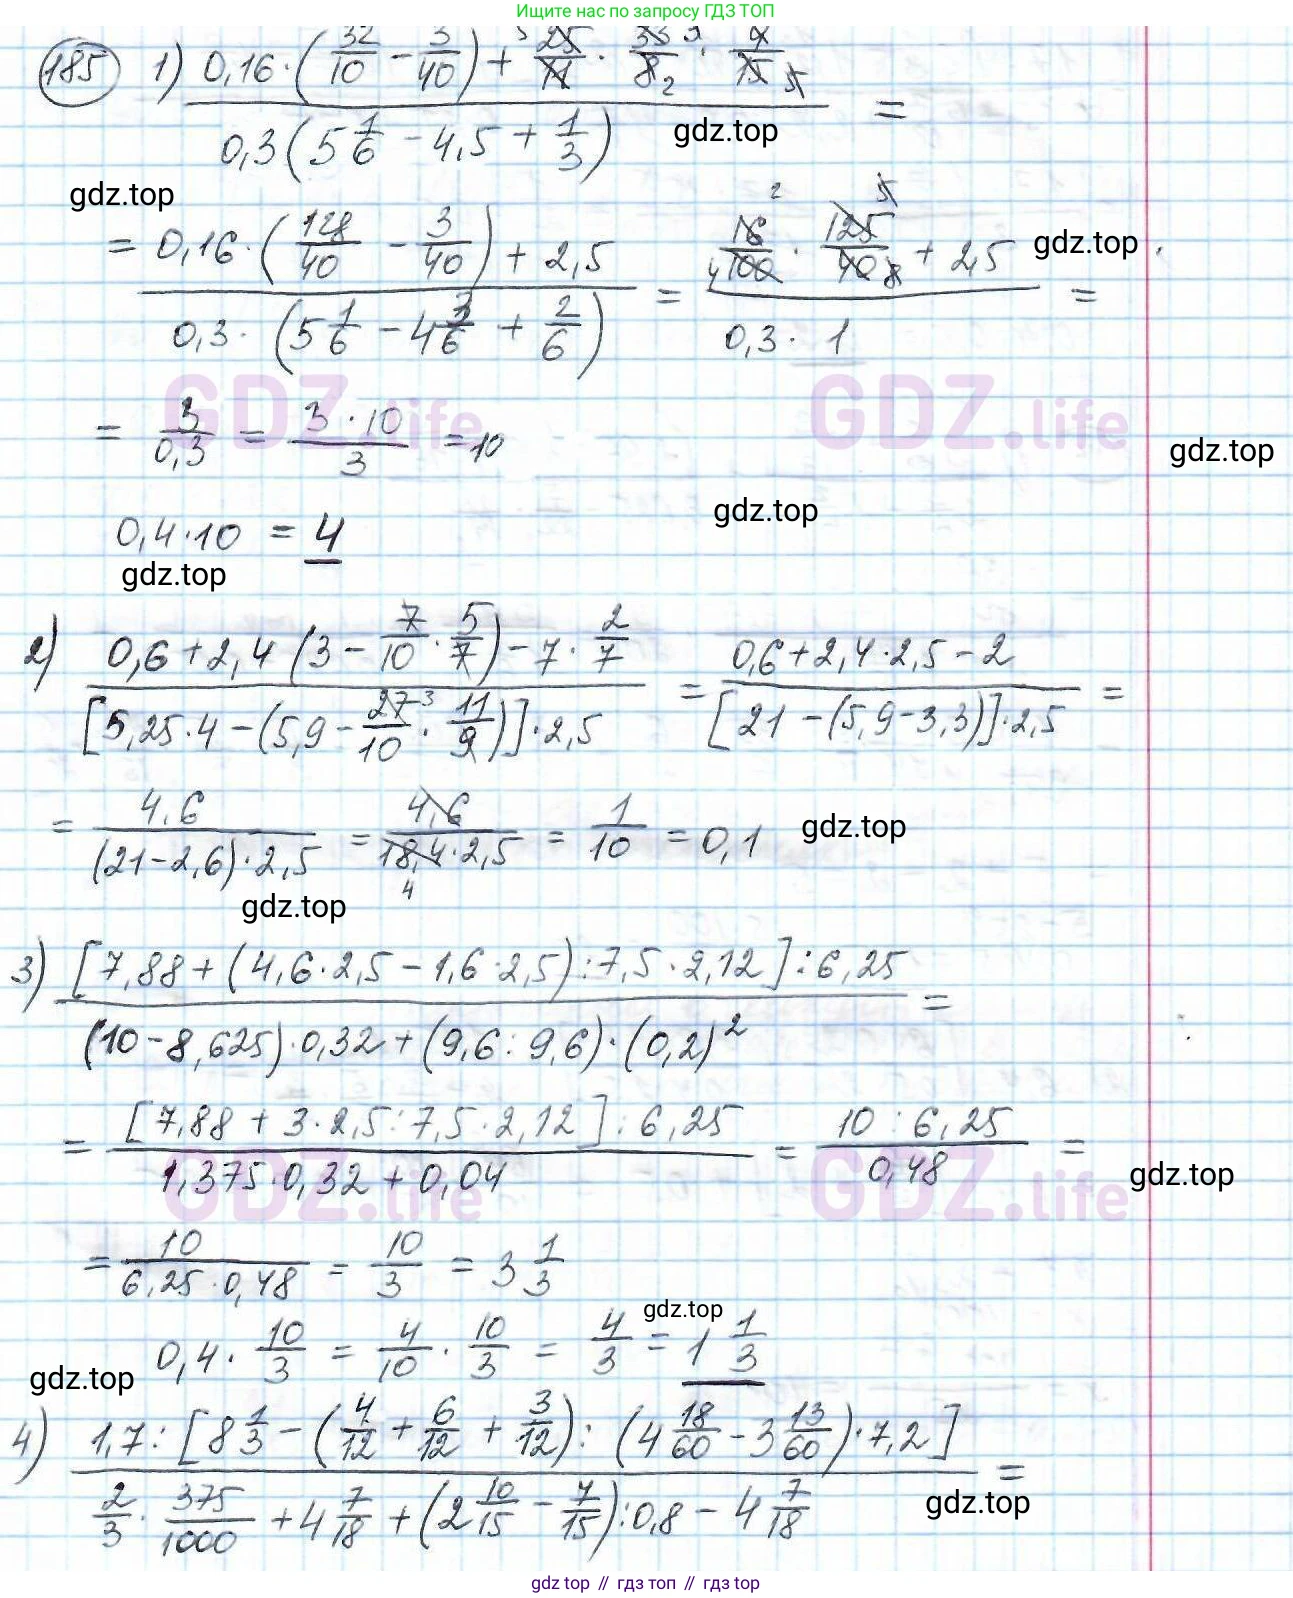 Ищите нас по запросу ГДЗ ТОП
185 1) 0,16·(32/10 − 3/40) + 25/11 · 33/8 · 4/15
0,3(5 1/6 − 4,5 + 1/3) =
gdz.top
gdz.top
= 0,16·(128/40 − 3/40) + 2,5 / 0,3·(5 1/6 − 4 3/6 + 2/6) = 16/100 · 125/40 + 2,5 / 0,3·1 =
gdz.top
GDZ.life GDZ.life
= 3/0,3 = 3·10/3 = 10
gdz.top
gdz.top
0,4·10 = 4
gdz.top
2) 0,6+2,4(3 − 7/10 · 5/7) − 7 · 2/7 / [5,25·4 − (5,9 − 27/10 · 11/9)]·2,5 = 0,6+2,4·2,5−2 / [21−(5,9−3,3)]·2,5 =
= 4,6/(21−2,6)·2,5 = 4,6/18,4·2,5 = 1/10 = 0,1
gdz.top
gdz.top
3) [7,88+(4,6·2,5−1,6·2,5):7,5·2,12]:6,25 / (10−8,625)·0,32+(9,6:9,6)·(0,2)² =
= [7,88+3·2,5:7,5·2,12]:6,25 / 1,375·0,32+0,04 = 10:6,25/0,48 =
gdz.top
GDZ.life GDZ.life
= 10/6,25·0,48 = 10/3 = 3 1/3
gdz.top
0,4· 10/3 = 4/10 · 10/3 = 4/3 = 1 1/3
gdz.top
4) 1,7:[8 1/3 − (4/12 + 6/12 + 3/12):(4 18/60 − 3 13/60)·7,2] / 2/3 · 375/1000 + 4 7/18 + (2 10/15 − 7/15):0,8 − 4 7/18 =
gdz.top
gdz top // гдз топ // gdz top